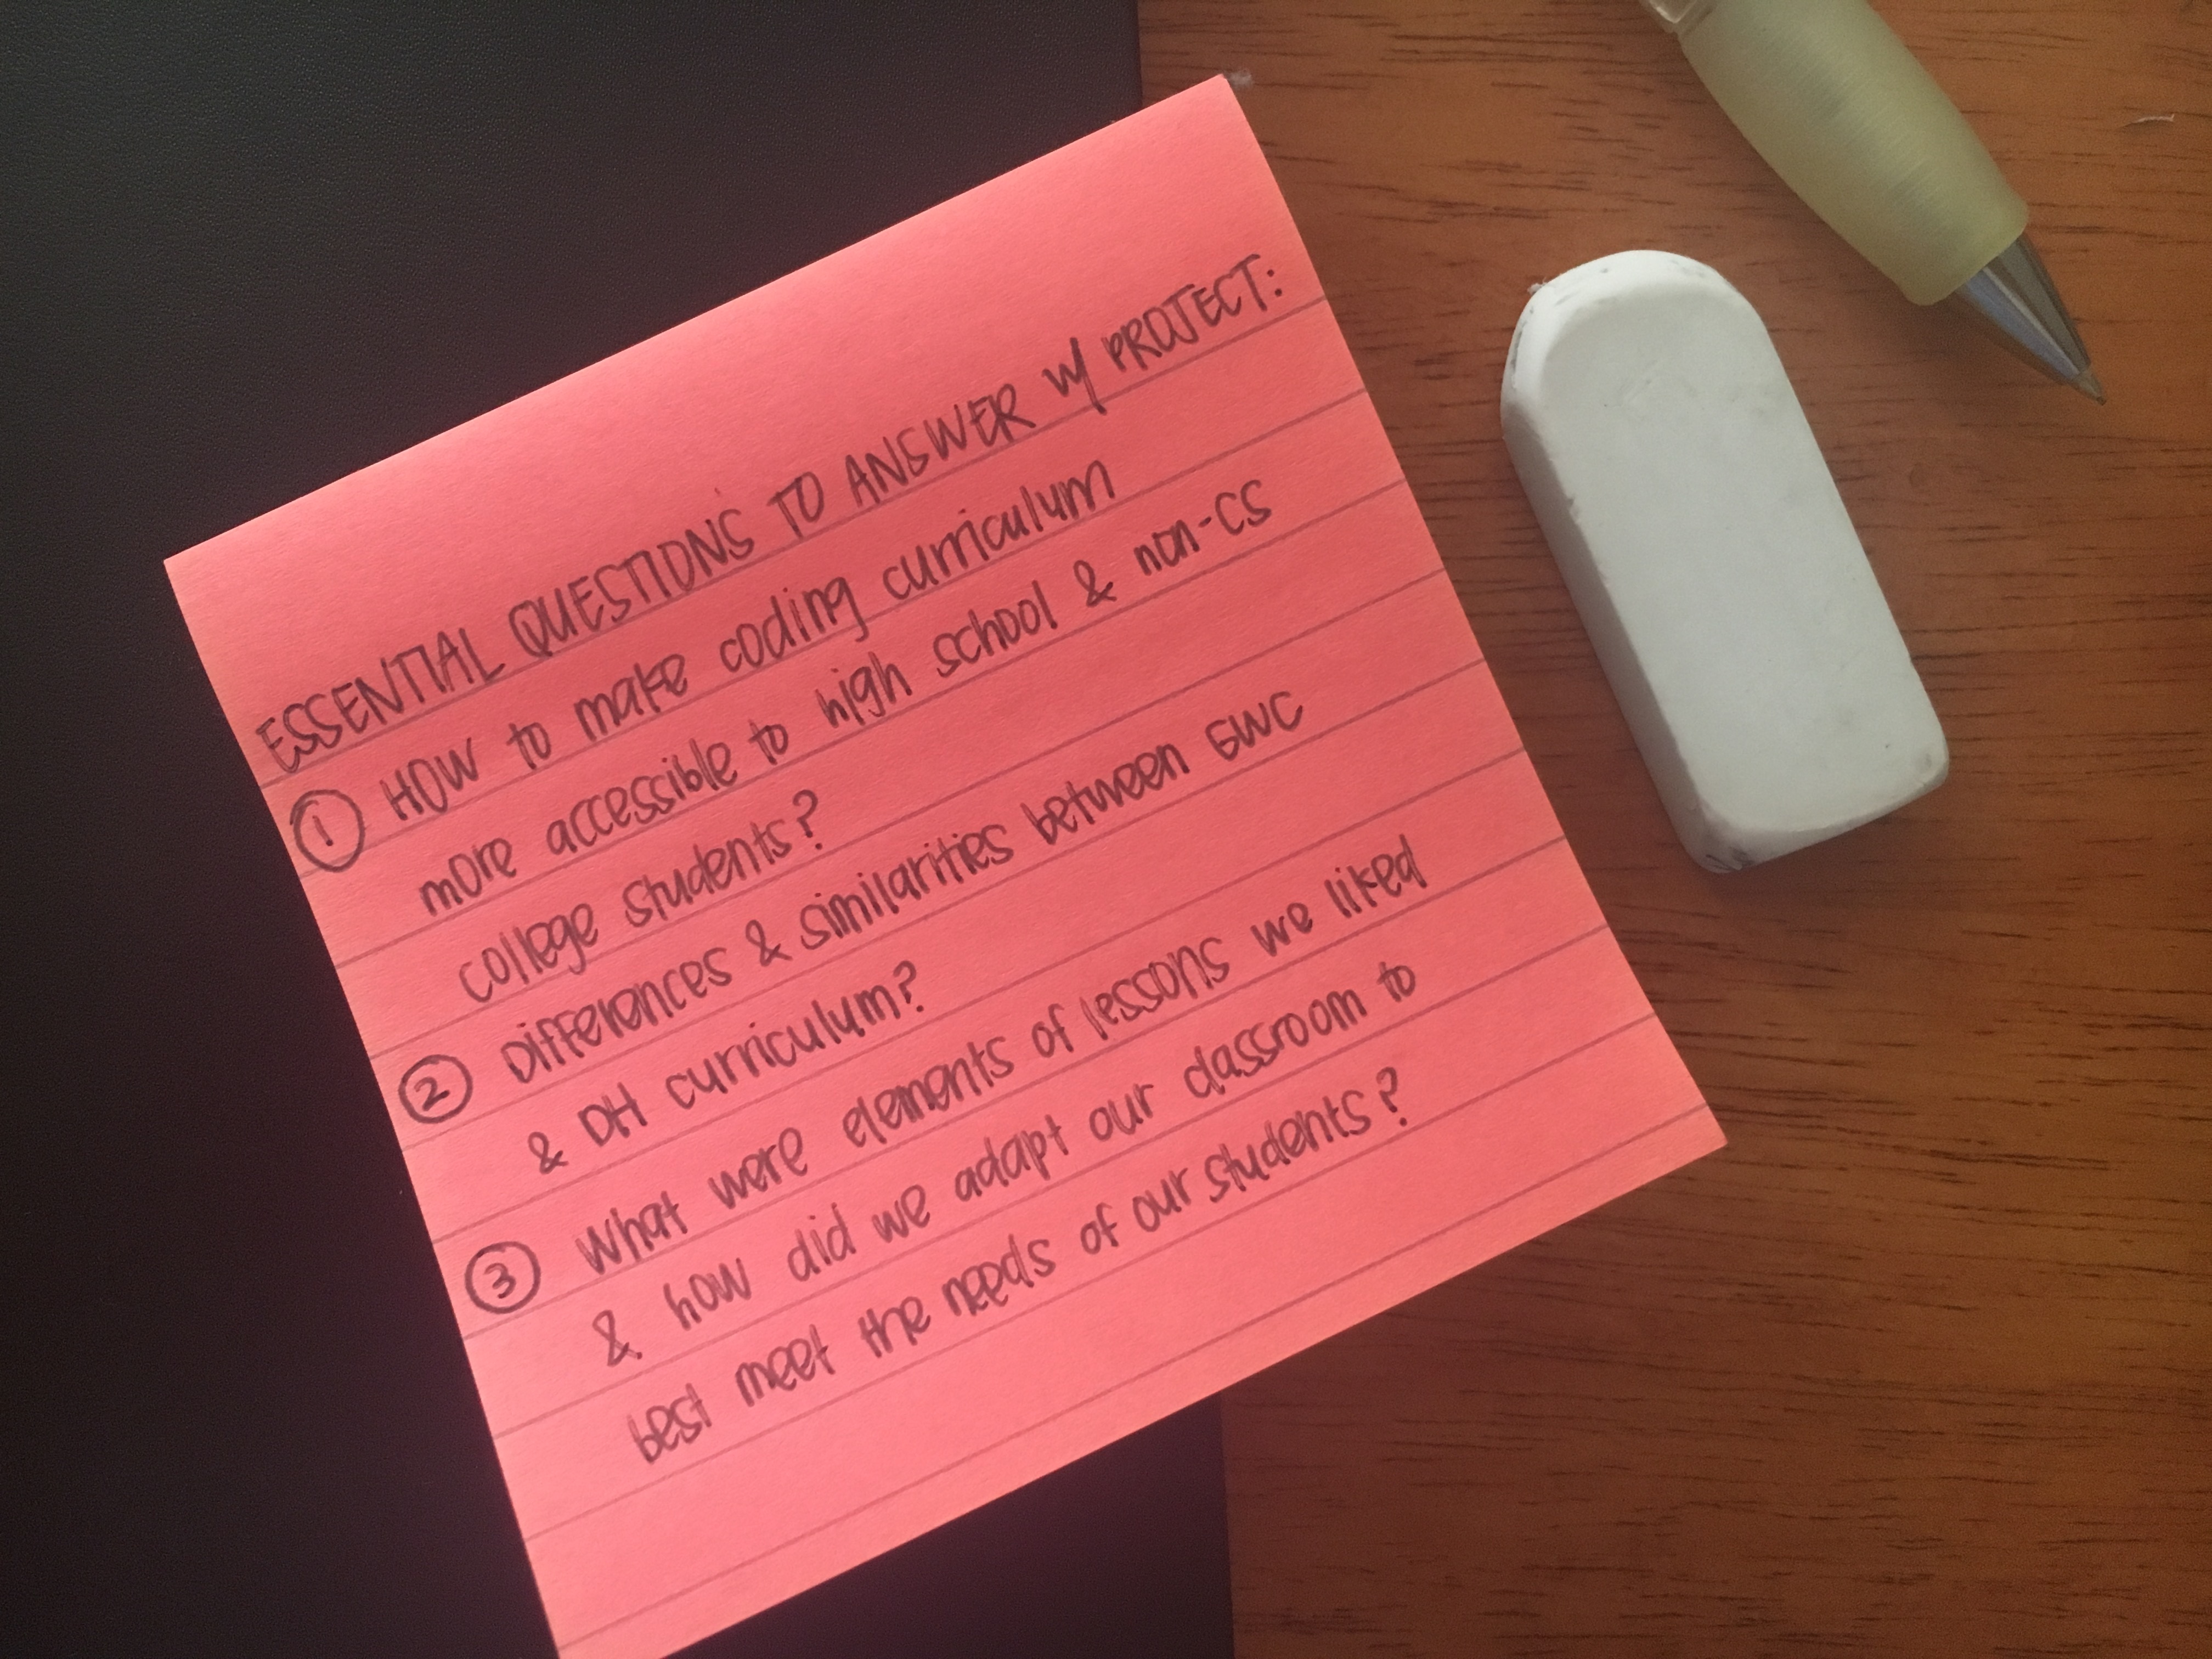 ESSENTIAL QUESTIONS TO ANSWER W/ PROJECT:
① HOW to make coding curriculum
more accessible to high school & non-CS
college students?
② Differences & similarities between GWC
& DH curriculum?
③ What were elements of lessons we liked
& how did we adapt our classroom to
best meet the needs of our students?